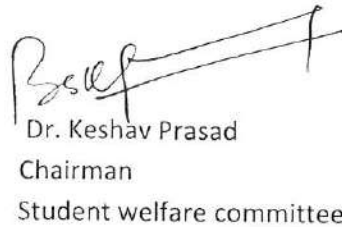 Dr. Keshav Prasad
Chairman
Student welfare committee